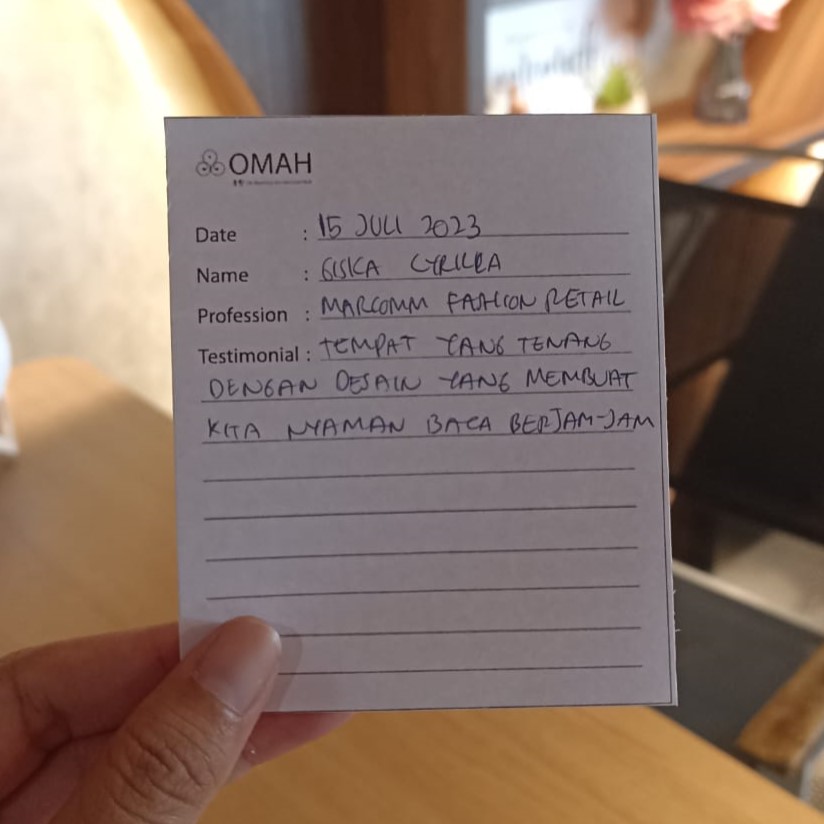 OMAH
Date : 15 JULI 2023
Name : SISKA CYRILLA
Profession : MARCOMM FASHION RETAIL
Testimonial : TEMPAT YANG TENANG
DENGAN DESAIN YANG MEMBUAT
KITA NYAMAN BACA BERJAM-JAM